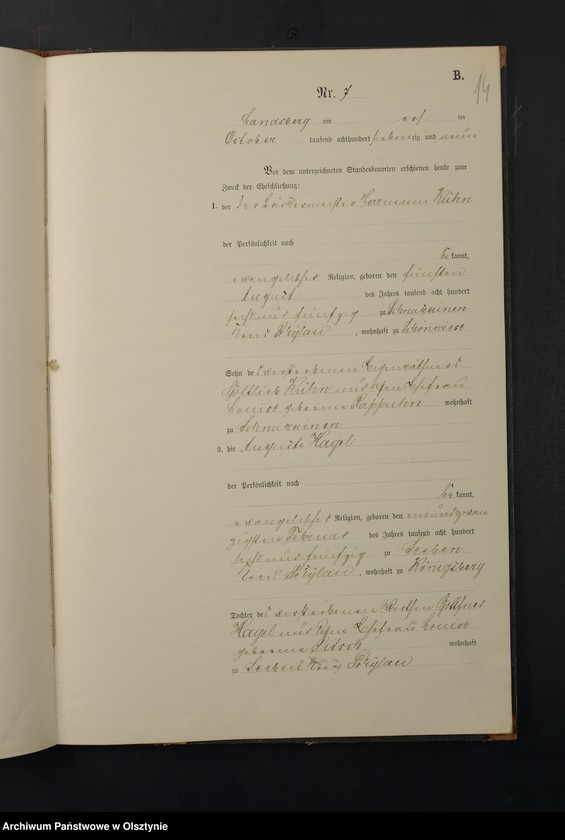 B.
14
Nr. 7
Landsberg am ten
October tausend achthundert siebenzig und neun
Vor dem unterzeichneten Standesbeamten erschienen heute zum
Zweck der Eheschließung:
1. der Herrmann Kühn
der Persönlichkeit nach
be kannt,
evangelischer Religion, geboren den fünften
August des Jahres tausend acht hundert
sechs und fünfzig zu Schnakeinen
Kreis Pr. Eylau, wohnhaft zu Schönwiese
Sohn des verstorbenen Eigenkäthners
Gottlieb Kühn und dessen Ehefrau
Louise geborene Rappuhn wohnhaft
zu Schnakeinen
2. die Auguste Hagel
der Persönlichkeit nach
be kannt,
evangelischer Religion, geboren den neunundzwan
zigsten Februar des Jahres tausend acht hundert
sechs und fünfzig zu Seeben
Kreis Pr. Eylau, wohnhaft zu Königsberg
Tochter des verstorbenen
Hagel und dessen Ehefrau Louise
geborene wohnhaft
zu Seeben Kreis Pr. Eylau
Archiwum Państwowe w Olsztynie